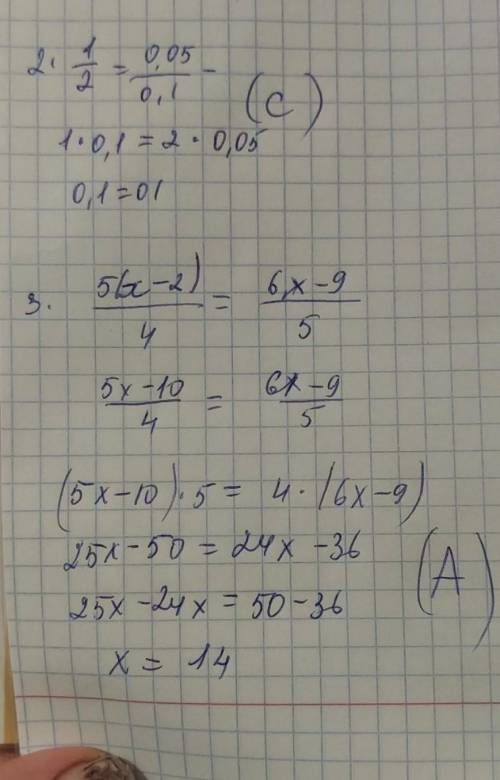 2. 1/2 = 0,05/0,1 - (C)
1 · 0,1 = 2 · 0,05
0,1 = 01
3. 5(x-2)/4 = 6x-9/5
5x-10/4 = 6x-9/5
(5x-10) · 5 = 4 · (6x-9)
25x-50 = 24x-36
25x-24x = 50-36 (A)
x = 14